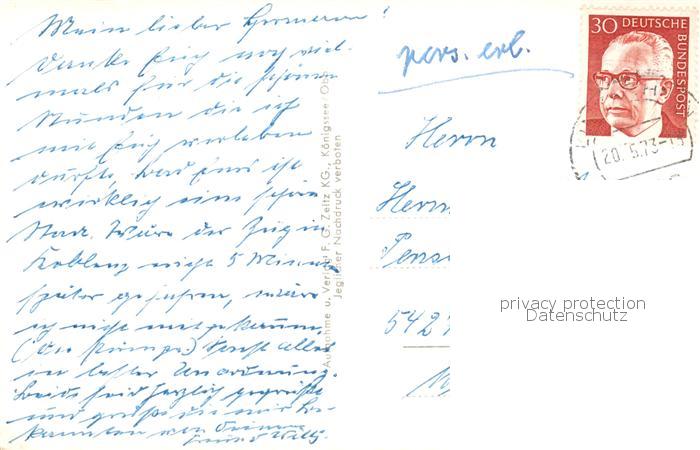 Mein lieber Hermann!
Danke Dir noch viel-
mals für die schönen
Stunden die ich
mit Dir verleben
durfte, Bad Ems ist
wirklich eine schöne
Stadt. Wäre der Zug in
Koblenz nicht 5 Minuten
später gefahren, wäre
ich nicht mitgekommen.
(Die Pumpe) Sonst alles
in bester Unordnung.
Beide seid herzlich gegrüßt
und grüße die mir be-
kannten von Deinem
Willy.
Aufnahme u. Verlag F. G. Zeitz KG., Königssee/Obb.
Jeglicher Nachdruck verboten
pers. erl.
30 DEUTSCHE
BUNDESPOST
20.5.73-15
Herrn
Herm
Pens
542
privacy protection
Datenschutz